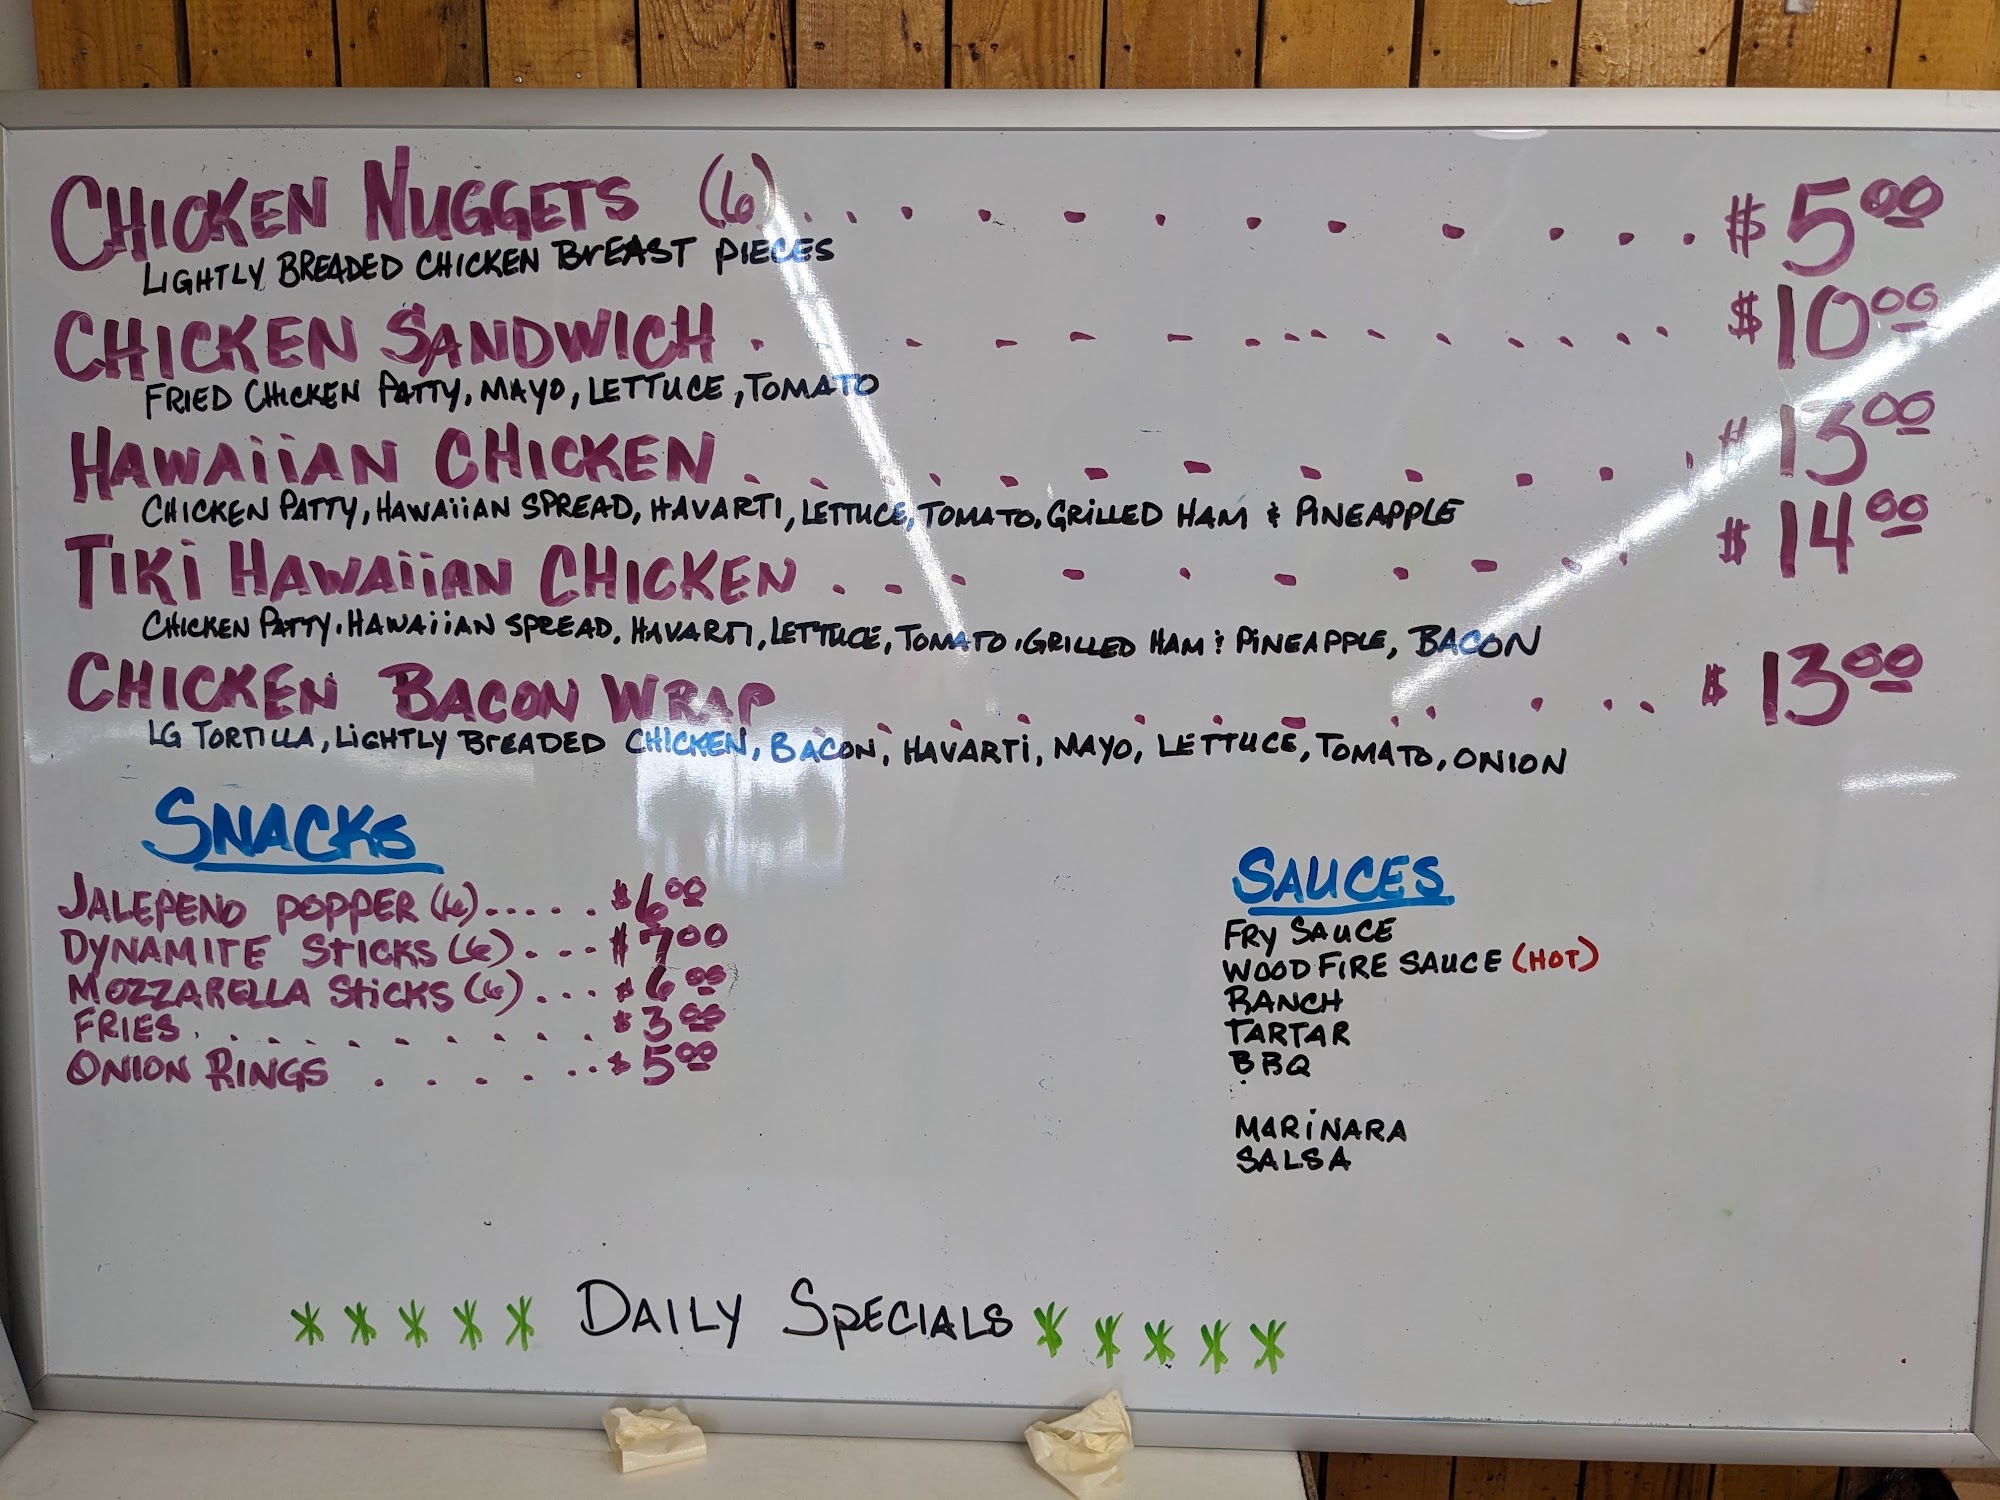 CHICKEN NUGGETS (6) . . . . . . . . . . . . . $5.00
LIGHTLY BREADED CHICKEN BREAST PIECES
CHICKEN SANDWICH . . . . . . . . . . . . . . . $10.00
FRIED CHICKEN PATTY, MAYO, LETTUCE, TOMATO
HAWAIIAN CHICKEN . . . . . . . . . . . . $13.00
CHICKEN PATTY, HAWAIIAN SPREAD, HAVARTI, LETTUCE, TOMATO, GRILLED HAM & PINEAPPLE
TIKI HAWAIIAN CHICKEN . . . . . . . . . . . $14.00
CHICKEN PATTY, HAWAIIAN SPREAD, HAVARTI, LETTUCE, TOMATO, GRILLED HAM & PINEAPPLE, BACON
CHICKEN BACON WRAP . . . . . . . . . . . . $13.00
LG TORTILLA, LIGHTLY BREADED CHICKEN, BACON, HAVARTI, MAYO, LETTUCE, TOMATO, ONION
SNACKS
JALEPENO POPPER (6) . . . . . . $6.00
DYNAMITE STICKS (6) . . . . $7.00
MOZZARELLA STICKS (6) . . . . $6.00
FRIES . . . . . . . . . . $3.00
ONION RINGS . . . . . . . $5.00
SAUCES
FRY SAUCE
WOOD FIRE SAUCE (HOT)
RANCH
TARTAR
BBQ
MARINARA
SALSA
* * * * * DAILY SPECIALS * * * * *